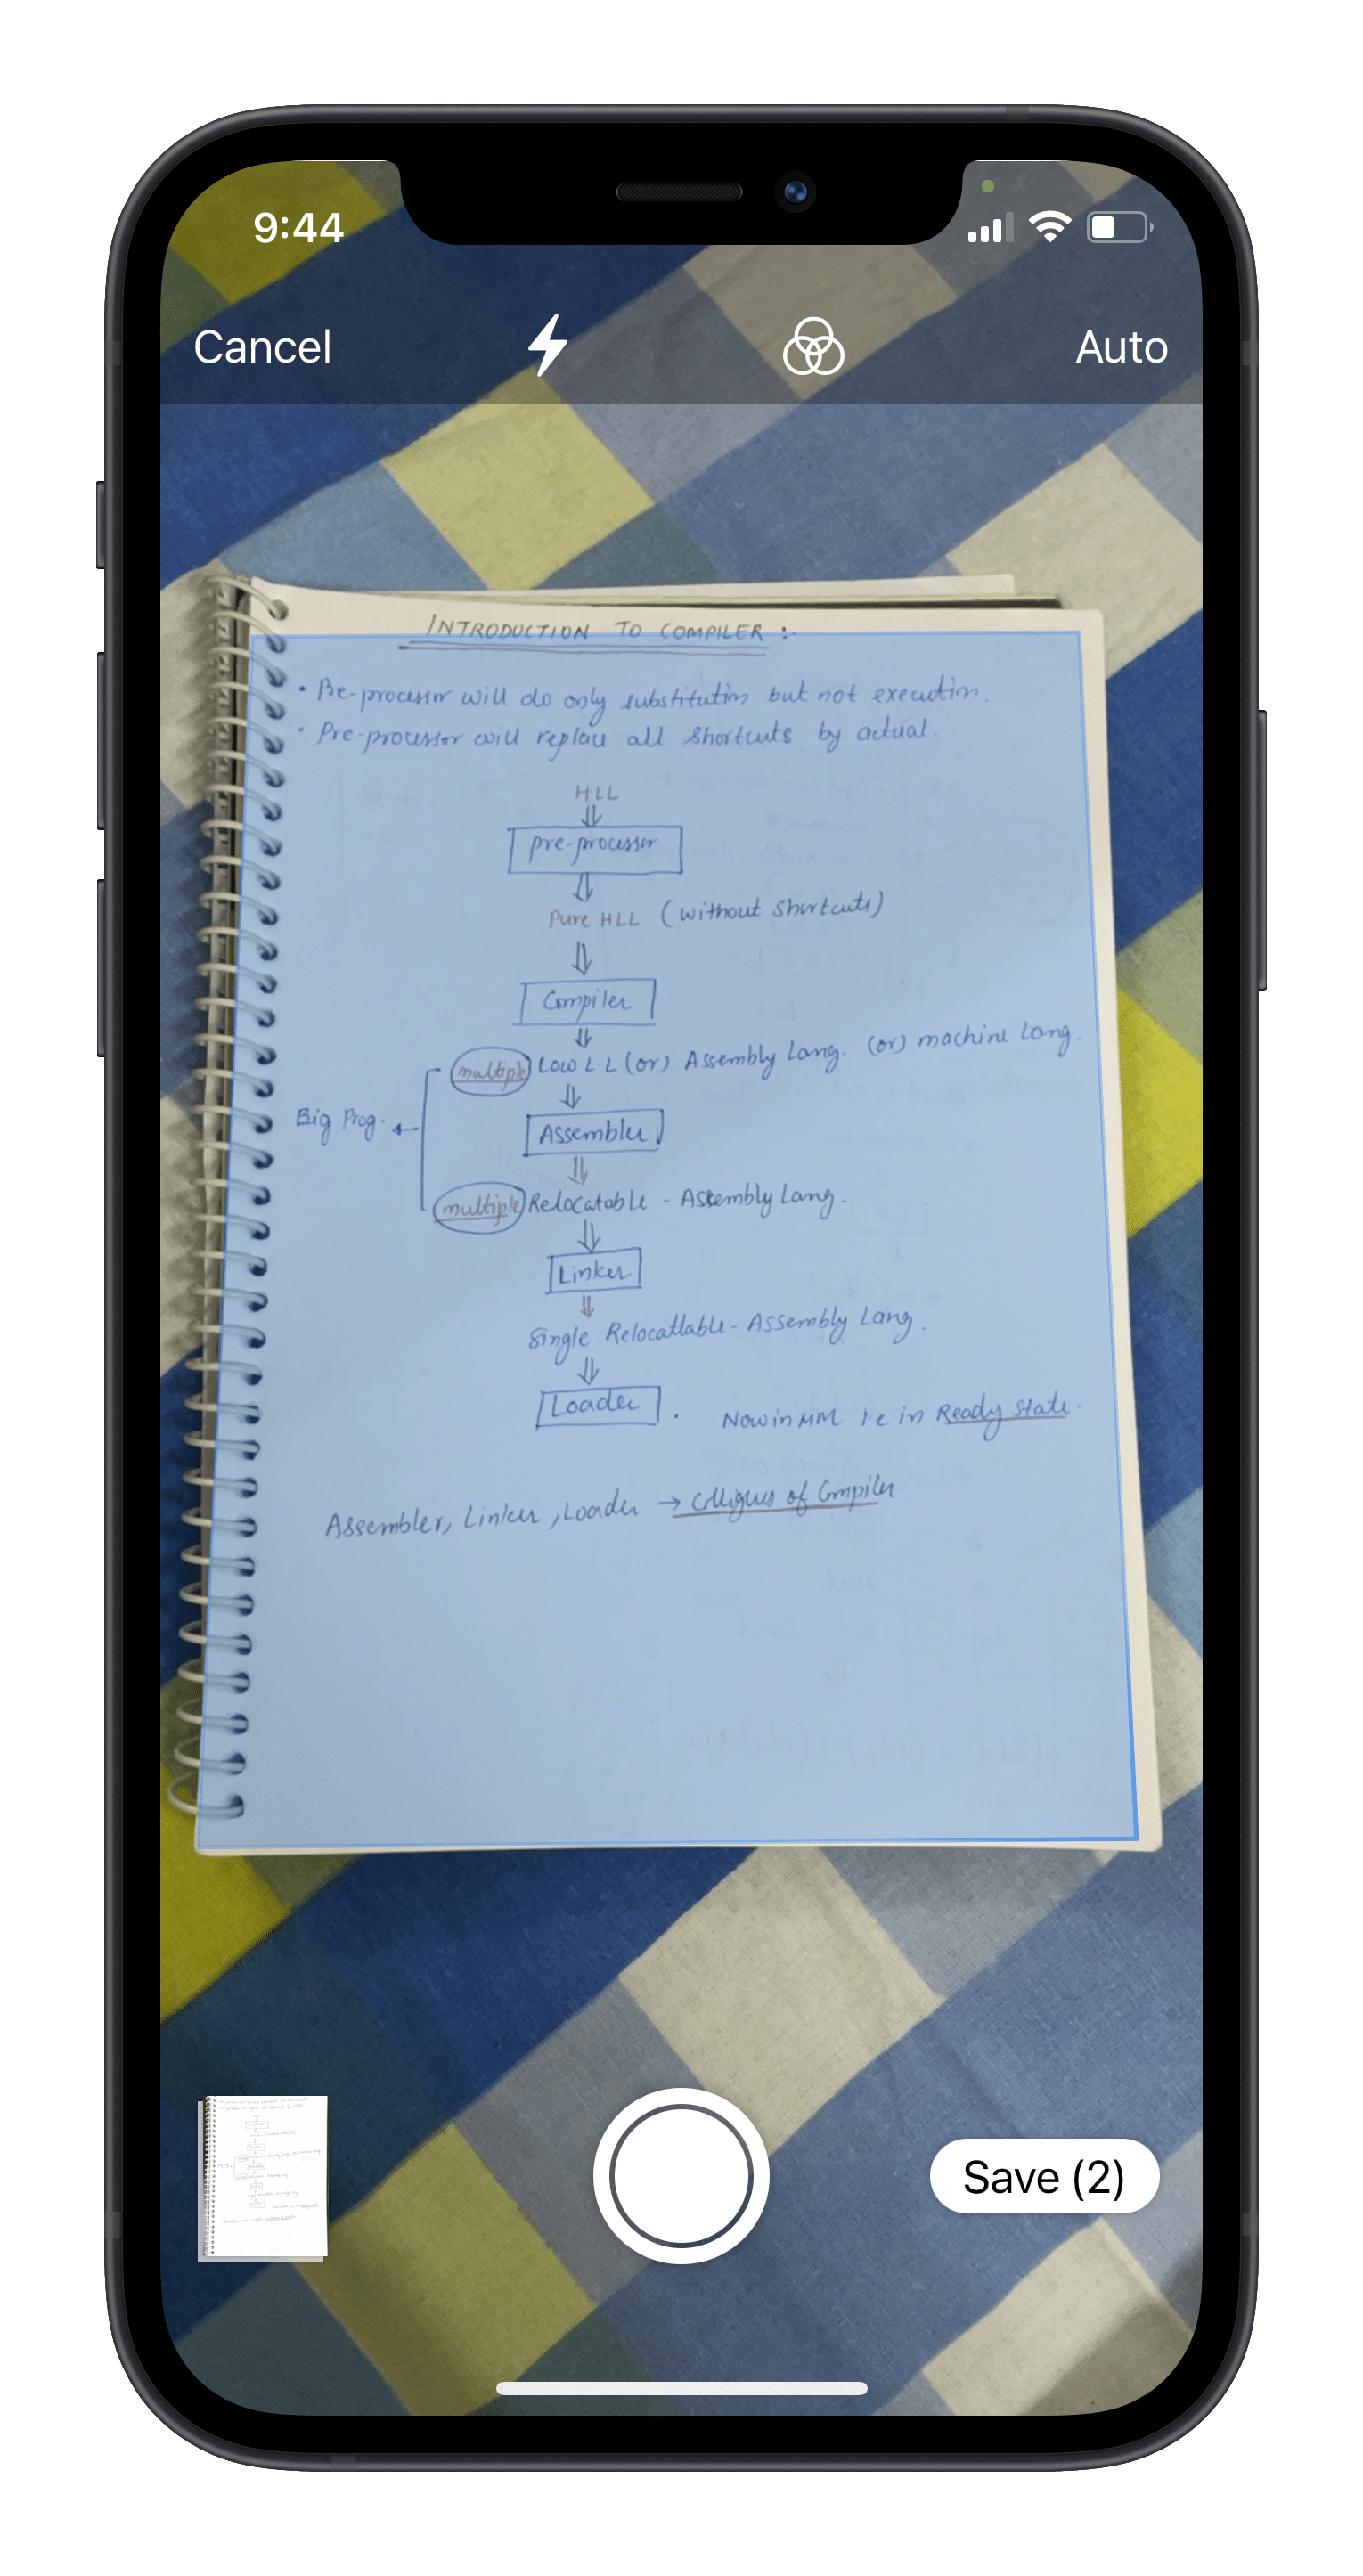 9:44
Cancel
Auto
INTRODUCTION TO COMPILER :-
• Pre-processor will do only substitution but not execution.
• Pre-processor will replace all shortcuts by actual.
HLL
pre-processor
Pure HLL (without shortcuts)
Compiler
multiple Low L L (or) Assembly Lang. (or) machine Lang.
Big Prog.
Assembler
multiple Relocatable - Assembly Lang.
Linker
Single Relocatlable - Assembly Lang.
Loader . Now in MM i.e in Ready state.
Assembler, Linker, Loader → Colligues of Compiler.
Save (2)